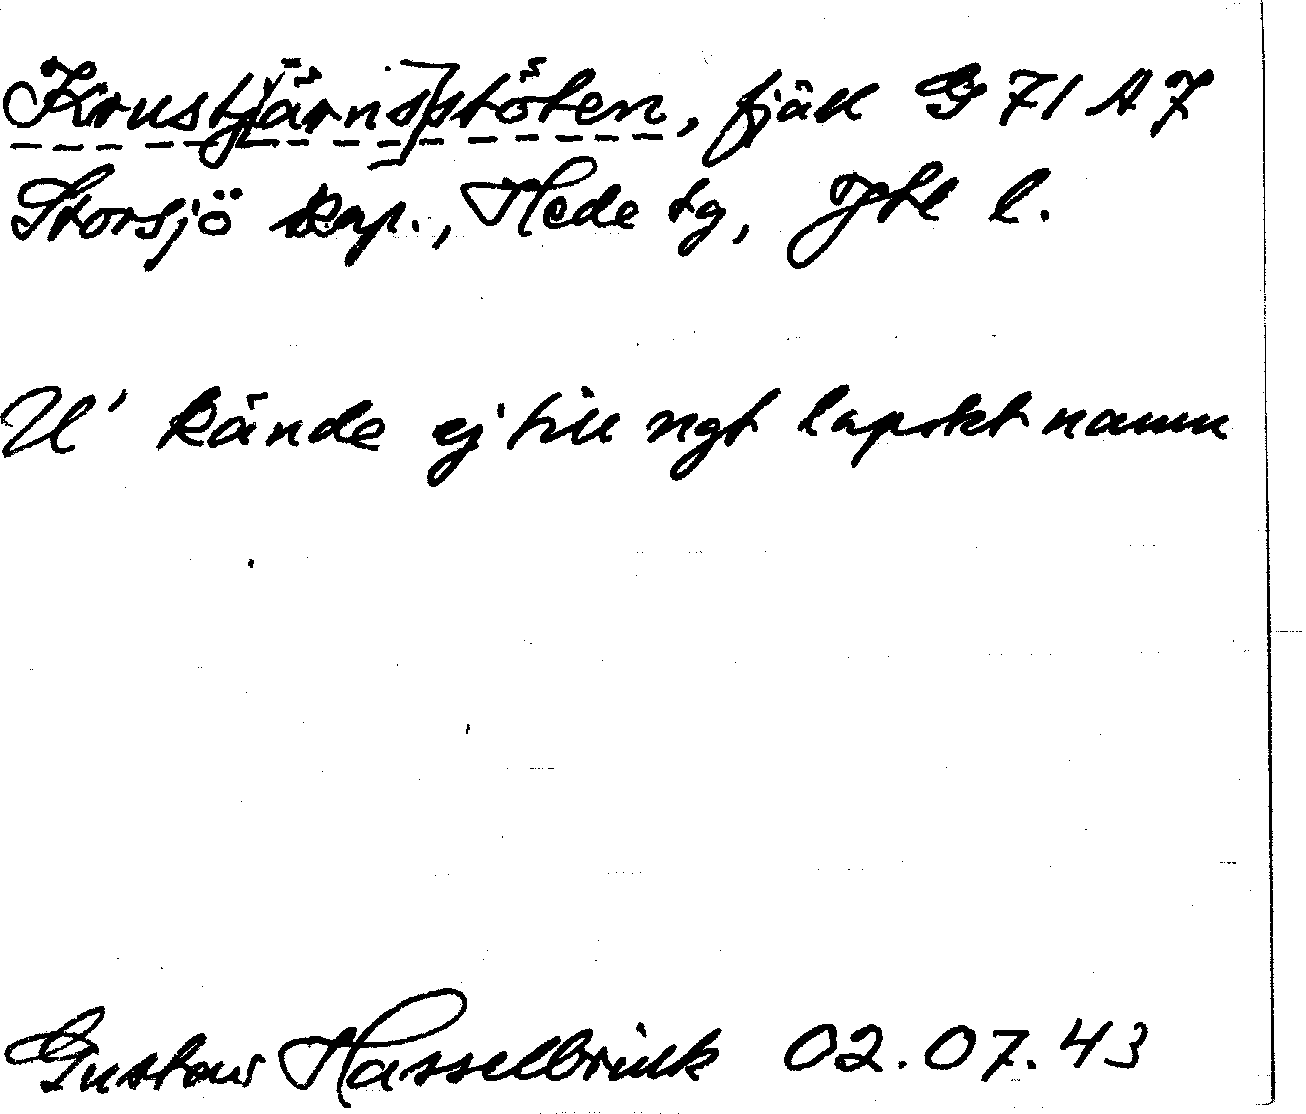 Krustjärn[s]stöten, fjäll G 71 A 7
Storsjö kap., Hede tg, Jtl l.
U' kände ej till ngt lapskt namn
Gustav Hasselbrink 02.07.43